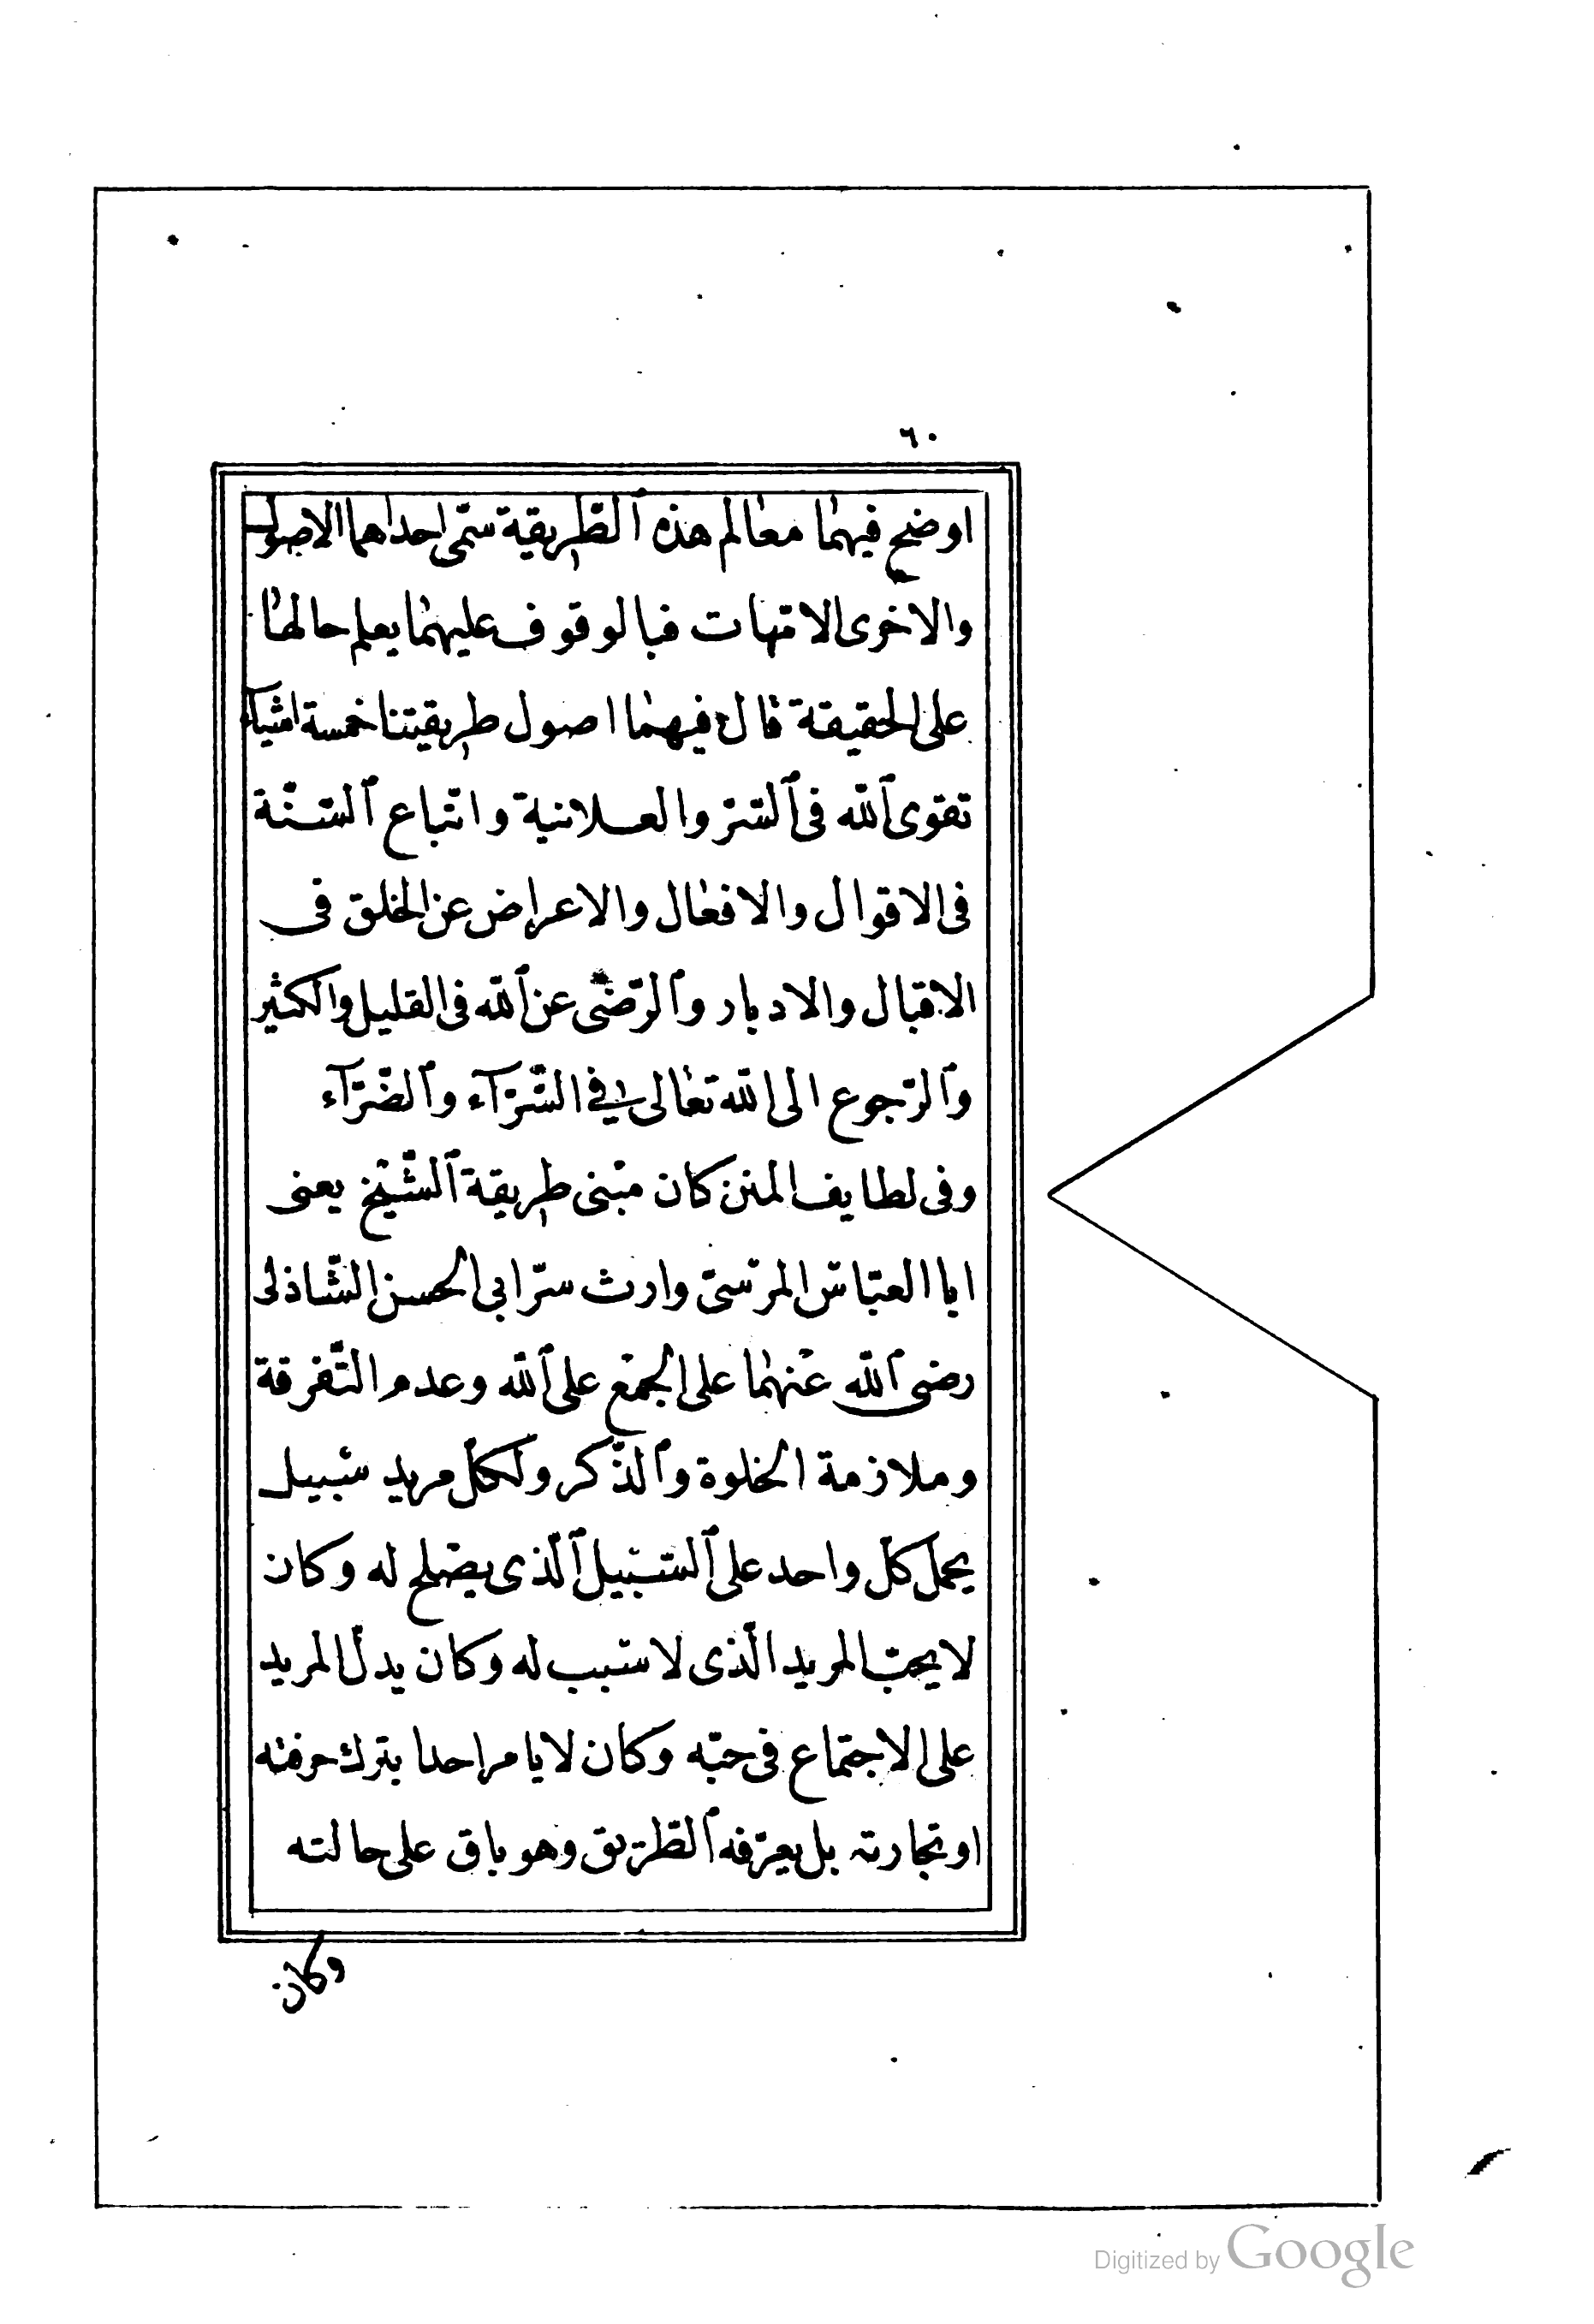 ٦٠
اوضح فيهما معالم هذه الطّريقة سمّى احداهما الاصول
والاخرى الامّهات فبالوقوف عليهما يعلم حالها
على الحقيقة قال فيهما اصول طريقيتنا خمسة اشياء
تقوى الله فى السّرّ والعلانية واتّباع السّنّة
فى الاقوال والافعال والاعراض عن الخلق فى
الاقبال والادبار والرّضى عن الله فى القليل والكثير
والرّجوع الى الله تعالى فى السّرّآء والضّرّآء
وفى لطايف المنن كان مبنى طريقة الشّيخ يعنى
ابا العبّاس المرسىّ وارث سرّ ابى الحسن الشّاذلى
رضى الله عنهما على الجمع على الله وعدم التّفرقة
وملازمة الخلوة والذّكر ولكلّ مريد سبيل
يحمل كلّ واحد على السّبيل الّذى يصلح له وكان
لا يحبّ المريد الّذى لا سبب له وكان يدلّ المريد
على الاجتماع فى حبّه وكان لا يامر احدا بترك حرفته
او تجارته بل يعرّفه الطّريق وهو باق على حالته
وكان
Digitized by Google